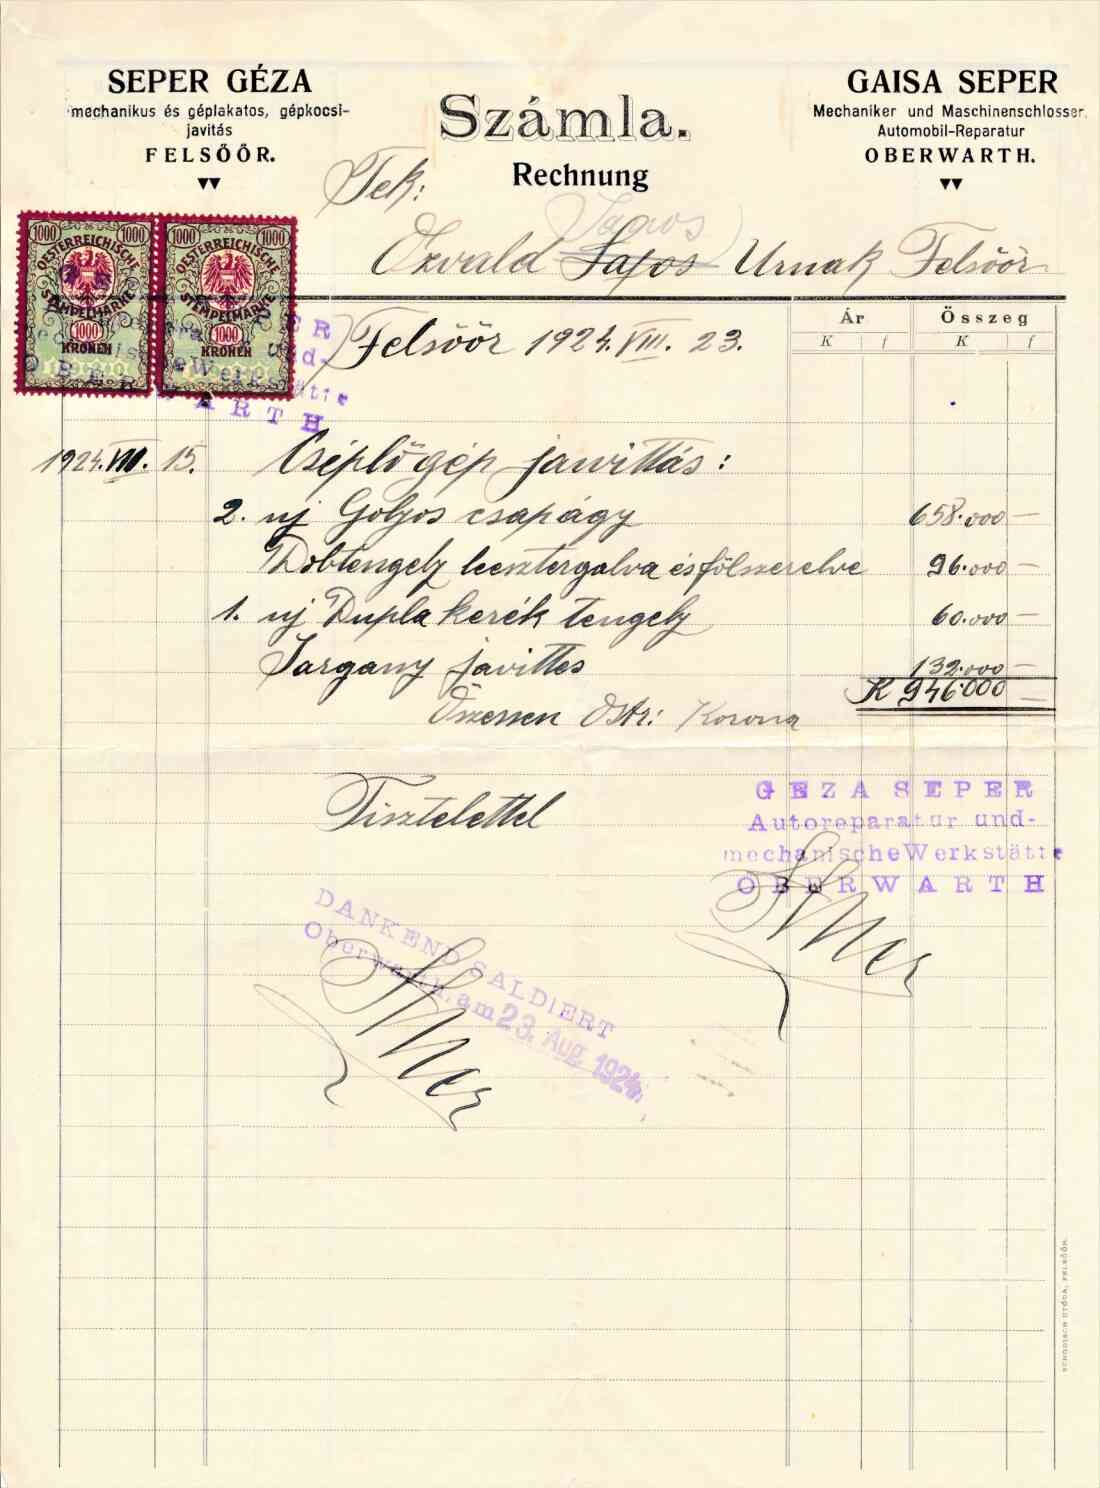 SEPER GÉZA
mechanikus és géplakatos, gépkocsi-
javitás
FELSŐŐR.
Számla.
Rechnung
GAISA SEPER
Mechaniker und Maschinenschlosser,
Automobil-Reparatur
OBERWARTH.
Tek:
Ozvald Lajos Urnak Felsőőr
1000 1000
OESTERREICHISCHE
STEMPELMARKE
1000
KRONEN
1000 1000
OESTERREICHISCHE
STEMPELMARKE
1000
KRONEN
Ár Összeg
K f K f
Felsőőr 1924. VIII. 23.
1924. VIII. 15. Cséplőgép jawittás:
2. uj Golyos csapágy 658.000 —
Dobtengely leesztergalva és fölszerelve 96.000 —
1. uj Dupla kerék tengely 60.000 —
Jargany javittes 132.000 —
K 946.000 —
Öszessen Ostr: Korona
Tisztelettel
GEZA SEPER
Autoreparatur und-
mechanische Werkstätte
OBERWARTH
DANKEND SALDIERT
Oberwarth, am 23. Aug. 1924
SCHODISCH UTÓDA, FELSŐŐR.